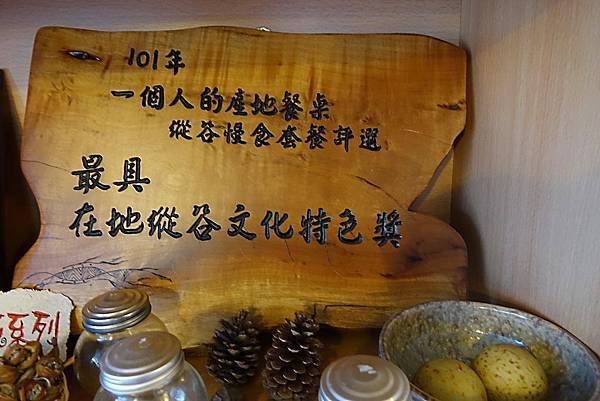 101年
一個人的產地餐桌
縱谷慢食套餐評選
最具
在地縱谷文化特色獎
系列